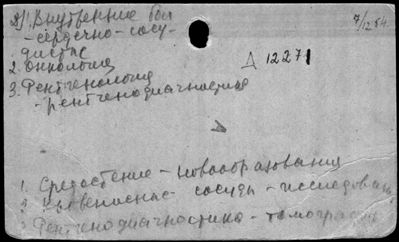 1. Внутренние бол
- сердечно-сосу-
дистые
7/12 54.
2. Онкология
Д 12271
3. Рентгенология
- рентгенодиагностика
1. Средостение - новообразования
2. Кровеносные сосуды - исследован
3. Рентгенодиагностика - томография